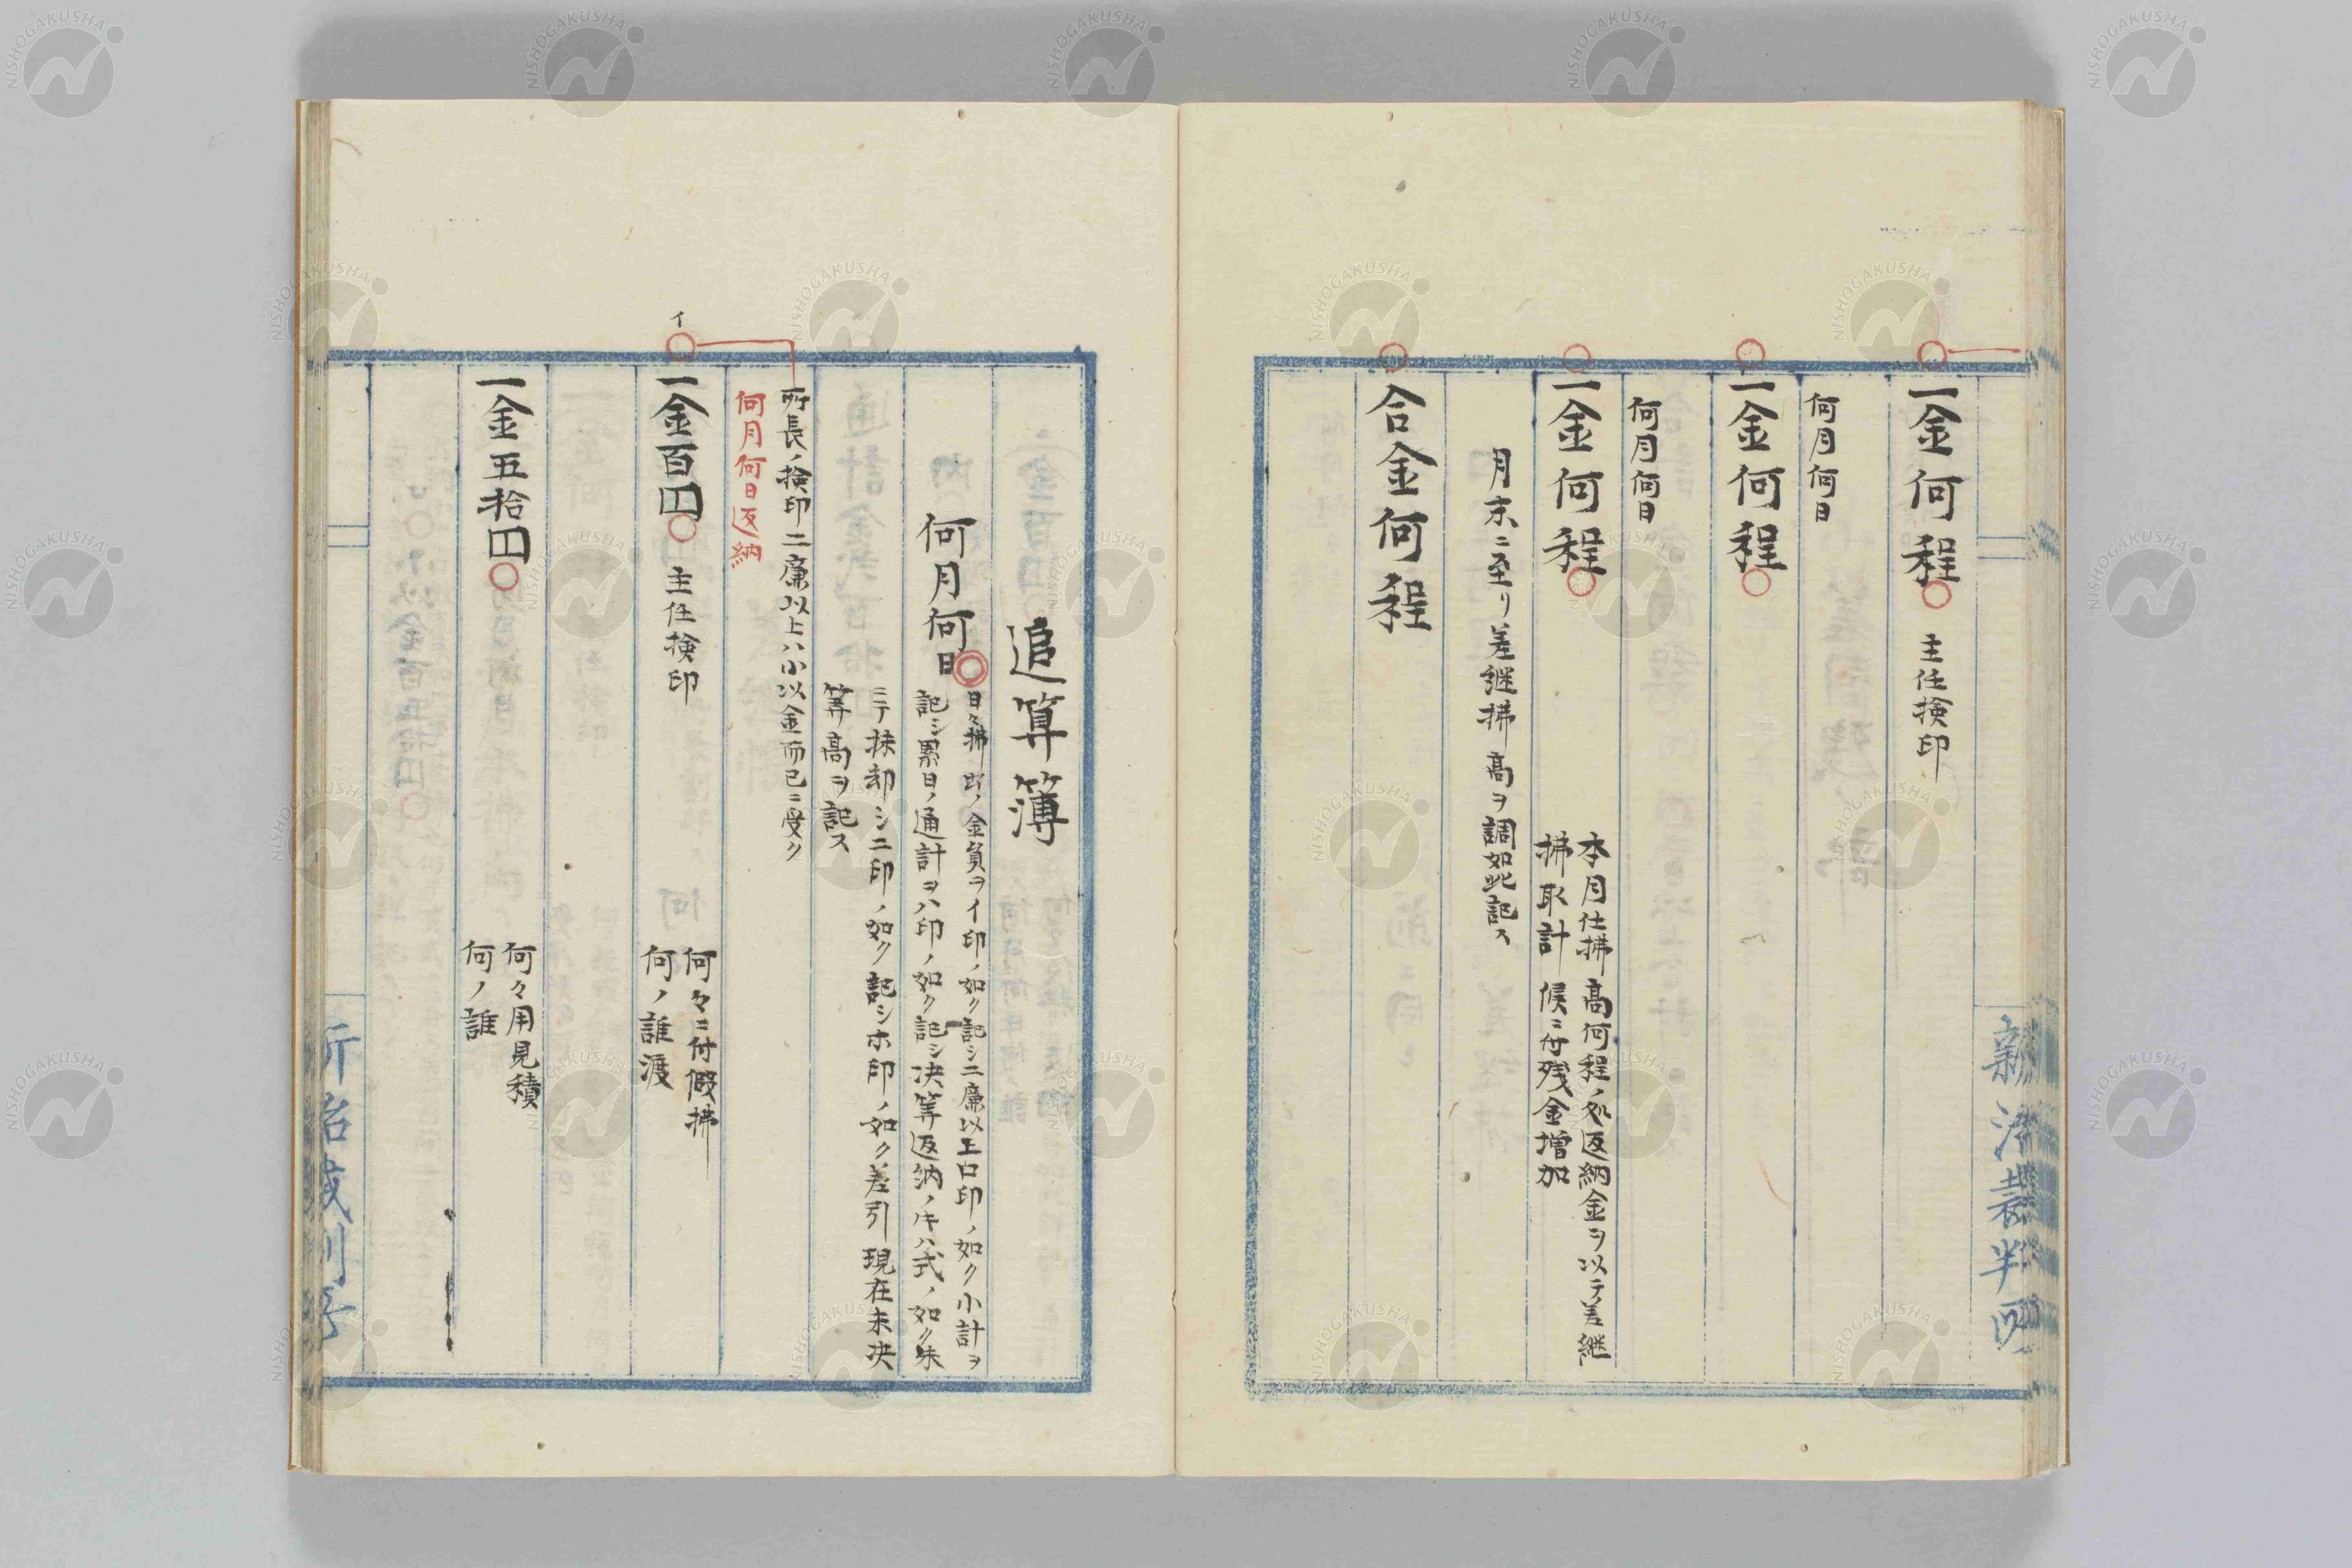 一金何程○ 主任検印
何月何日
一金何程○
何月何日
一金何程○
本月仕拂高何程ノ処返納金ヲ以テ差継
拂取計候ニ付残金増加
月末ニ至リ差継拂高ヲ調如此記ス
合金何程
追算簿
何月何日◎
日々拂出ノ金負ヲイ印ノ如ク記シ二廉以上ロ印ノ如ク小計ヲ
記シ累日ノ通計ヲハ印ノ如ク記シ決算返納ノキハ式ノ如ク朱
ニテ抹却シニ印ノ如ク記シホ印ノ如ク差引現在未决
算高ヲ記ス
所長ノ検印二廉以上ハ小以金而已ニ受ク
何月何日返納
イ
一金百円○ 主任検印
何々ニ付假拂
何ノ誰渡
一金五拾円○
何々用見積
何ノ誰
NISHOGAKUSHA